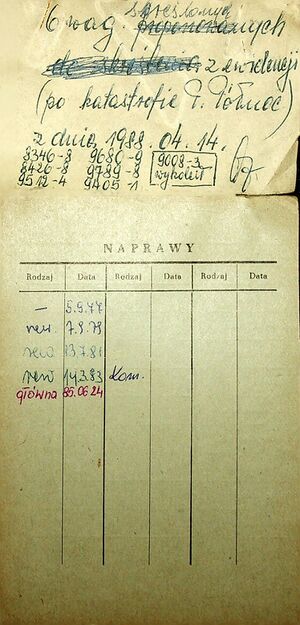 skreślonych
6 wag. proponowanych
do skreślenia z ewidencji
(po katastrofie P. Północ)
z dnia 1988.04.14.
8346-8 9680-9 9008-3
8426-8 9789-8 wykoleił
9512-4 9405-1
NAPRAWY
Rodzaj Data Rodzaj Data Rodzaj Data
- 5.9.77
rew 7.9.79
rew 13.7.81
rew 14.3.83 Kom.
główna 85.06.24